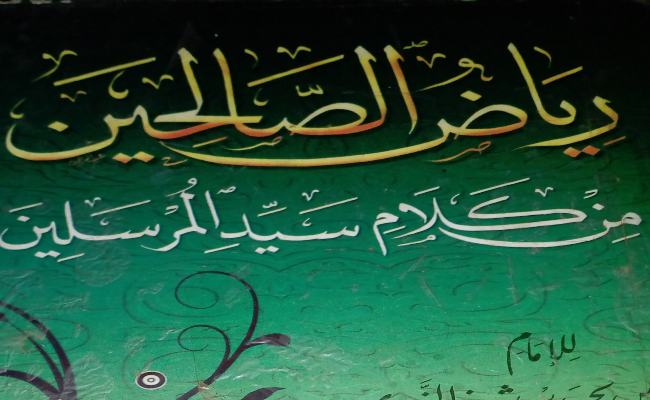 رِيَاضُ الصَّالِحِينَ
مِنْ كَلَامِ سَيِّدِ الْمُرْسَلِينَ
لِلإِمَامِ